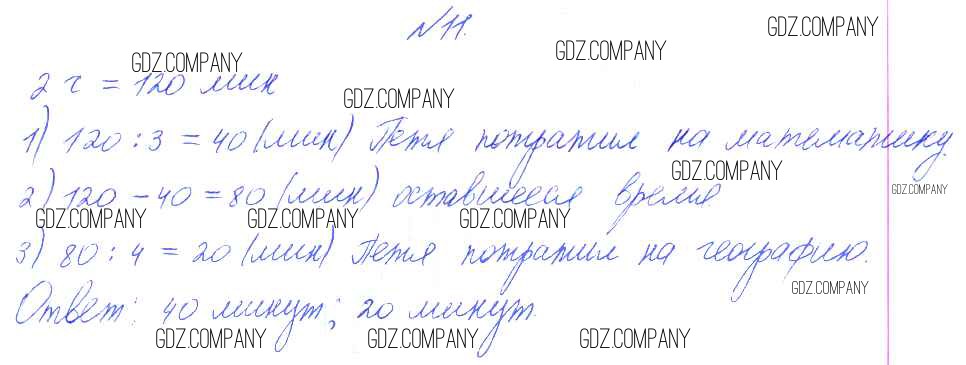 № 11.
GDZ.COMPANY
GDZ.COMPANY
GDZ.COMPANY
2 ч = 120 мин
GDZ.COMPANY
1) 120 : 3 = 40 (мин) Петя потратил на математику.
GDZ.COMPANY
2) 120 – 40 = 80 (мин) оставшееся время
GDZ.COMPANY
GDZ.COMPANY GDZ.COMPANY GDZ.COMPANY
3) 80 : 4 = 20 (мин) Петя потратил на географию.
GDZ.COMPANY
Ответ: 40 минут; 20 минут.
GDZ.COMPANY GDZ.COMPANY GDZ.COMPANY